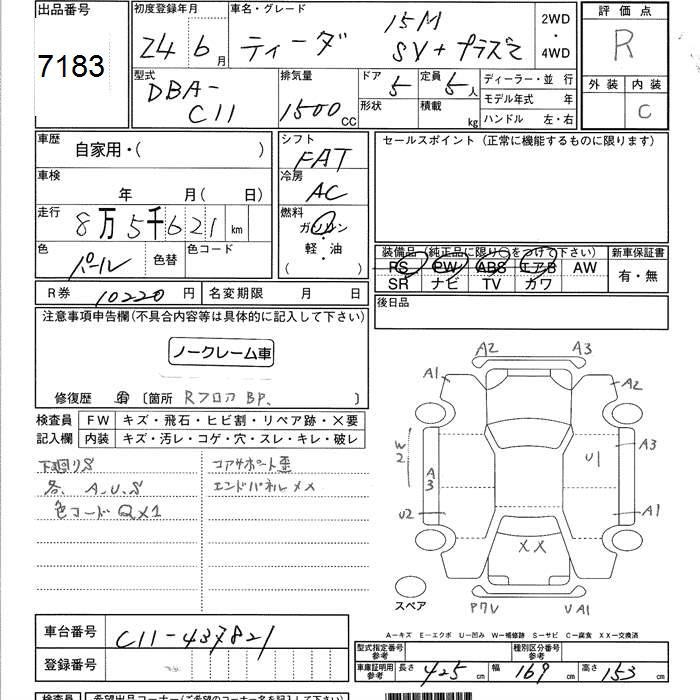 出品番号
7183
初度登録年月
24 年 6 月
車名・グレード
ティーダ
15M
SV+プラズマ
2WD
・
4WD
評価点
R
外装
内装
C
型式
DBA-
C11
排気量
1500 CC
ドア
5
形状
定員
5人
積載
kg
ディーラー・並行
モデル年式 年
ハンドル 左・右
車歴
自家用・( )
車検
年 月( 日)
走行
8万5千621 km
色
パール
色替
色コード
R券
10220円
名変期限 月 日
シフト
FAT
冷房
AC
燃料
ガソリン
・
軽・油
( )
セールスポイント(正常に機能するものに限ります)
装備品(純正品に限り○をつけて下さい)
PS PW ABS エアB AW
SR ナビ TV カワ
新車保証書
有・無
後日品
注意事項申告欄(不具合内容等は具体的に記入して下さい)
ノークレーム車
修復歴 有 〔箇所 Rフロア BP、 〕
検査員
記入欄
FW キズ・飛石・ヒビ割・リペア跡・×要
内装 キズ・汚レ・コゲ・穴・スレ・キレ・破レ
下廻りS
各、A、U、S
色コードQX1
コアサポート歪
エンドパネルXX
A2
A3
A1
A2
W2
A3
U1
A3
U2
A1
XX
スペア
P7V
UA1
A−キズ E−エクボ U−凹み W−補修跡 S−サビ C−腐食 XX−交換済
車台番号
C11-437821
登録番号
型式指定番号
参考
種別区分番号
参考
車庫証明用
参考
長さ 425 cm
幅 169 cm
高さ 153 cm
検査員
希望出品コーナー(ご希望のコーナー名を記入して下さい)